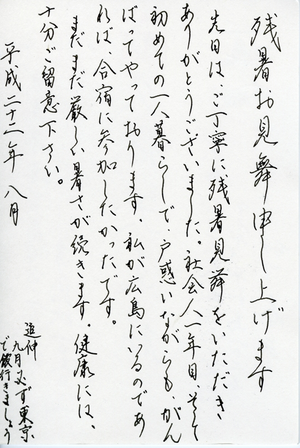 残暑お見舞申し上げます
先日は、ご丁寧に、残暑見舞をいただき
ありがとうございました。社会人一年目、そして
初めての一人暮らしで、戸惑いながらも、がん
ばってやっております。私が広島にいるのであ
れば、合宿に参加したかったです。
まだまだ厳しい暑さが続きます。健康には、
十分ご留意下さい。
平成二十二年 八月
追伸
九月必ず東京
で飲行きましょう